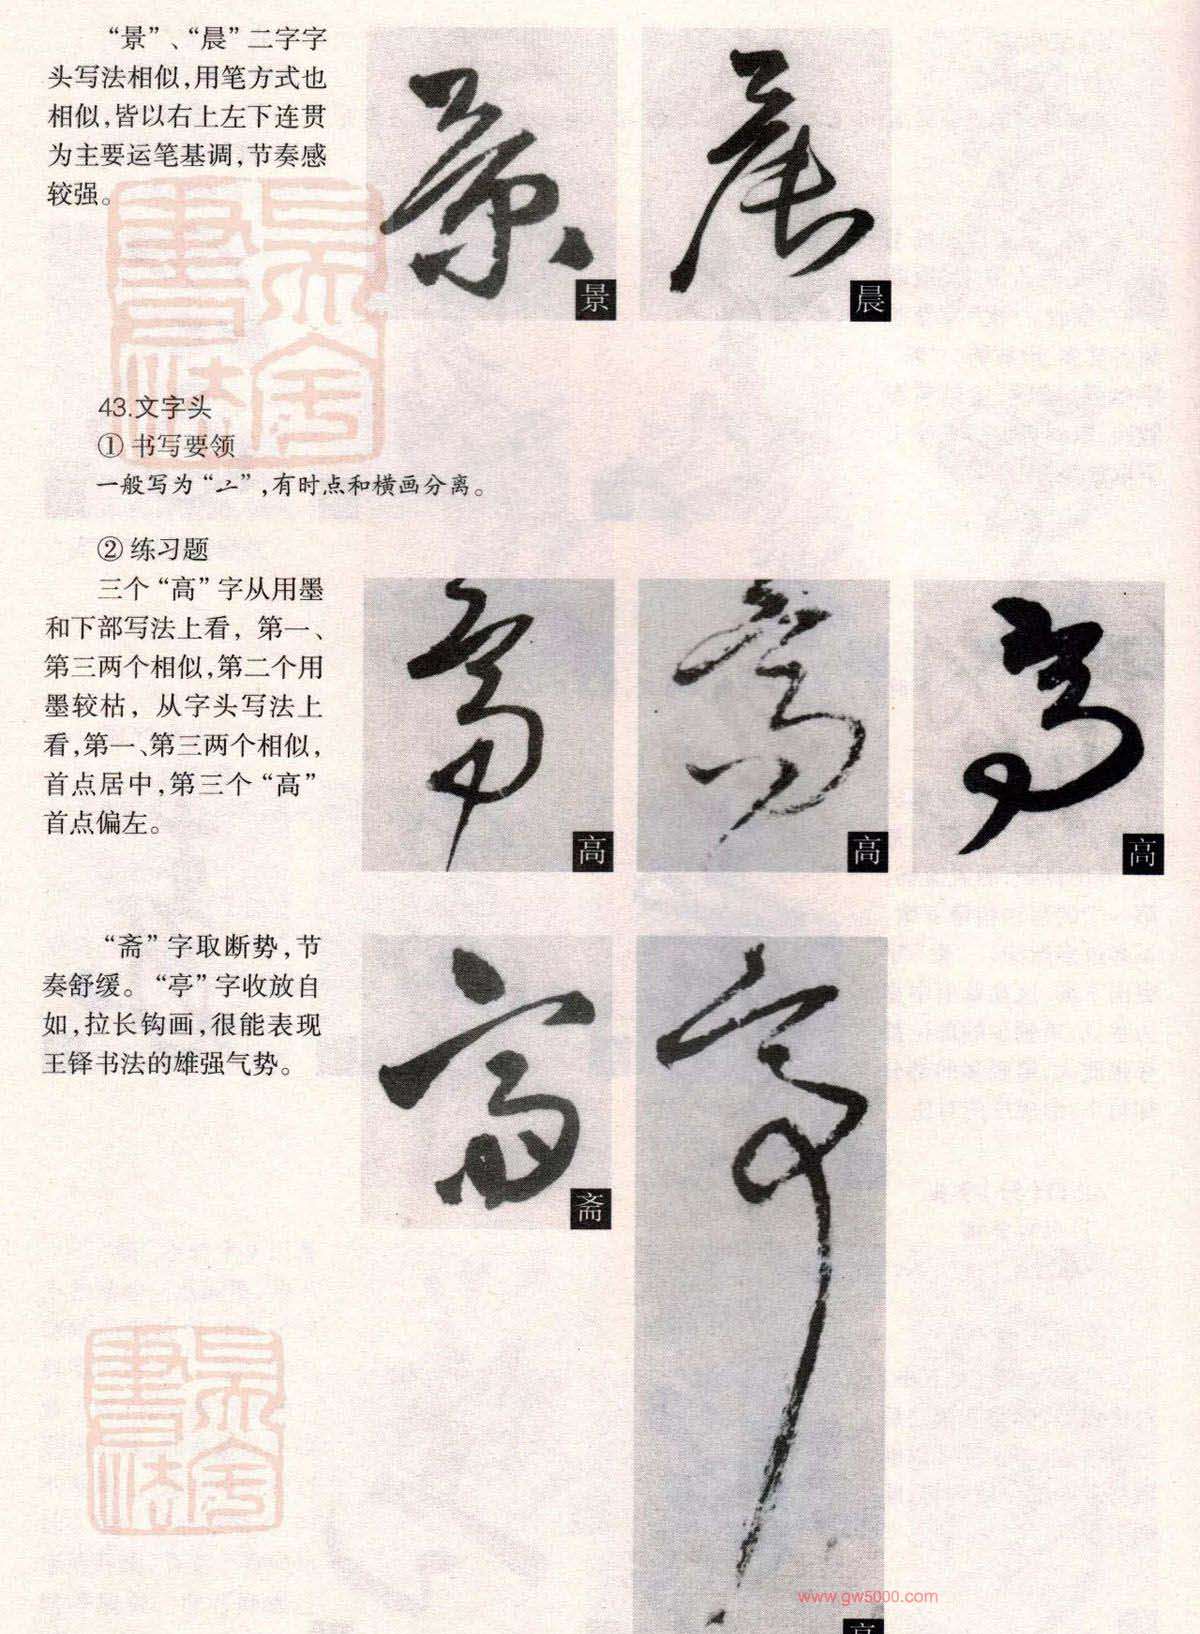 “景”、“晨”二字字
头写法相似,用笔方式也
相似,皆以右上左下连贯
为主要运笔基调,节奏感
较强。
景
晨
43.文字头
① 书写要领
一般写为“亠”,有时点和横画分离。
② 练习题
三个“高”字从用墨
和下部写法上看, 第一、
第三两个相似,第二个用
墨较枯, 从字头写法上
看,第一、第三两个相似,
首点居中,第三个“高”
首点偏左。
高
高
高
“斋”字取断势,节
奏舒缓。“亭”字收放自
如,拉长钩画,很能表现
王铎书法的雄强气势。
斋
www.gw5000.com